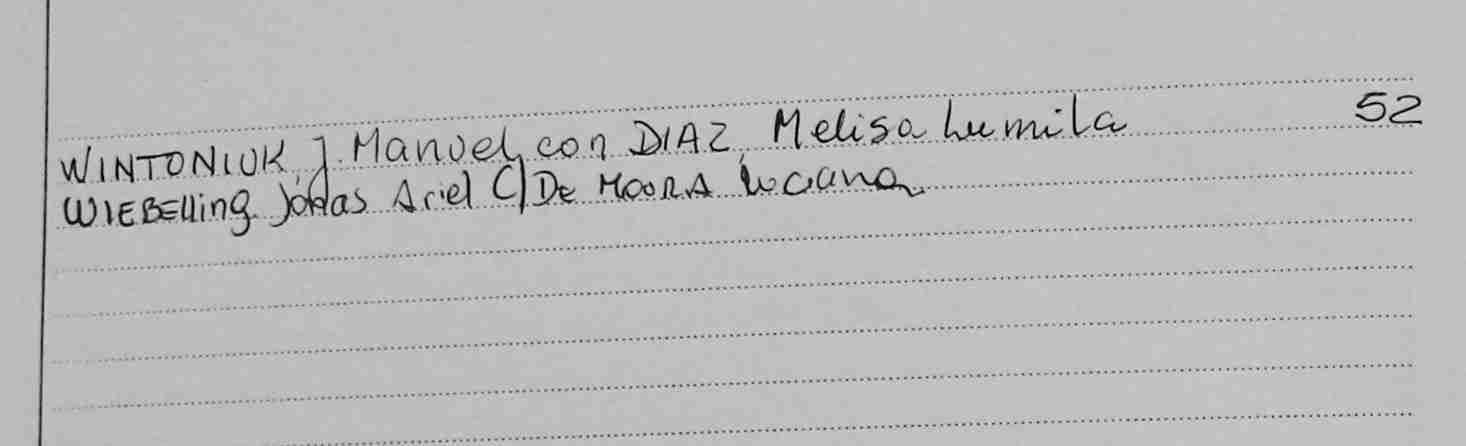 WINTONIUK, J. Manuel con DIAZ, Melisa Lumila 52
WIEBELLing Jonas Ariel C/ De MOORA Luciana